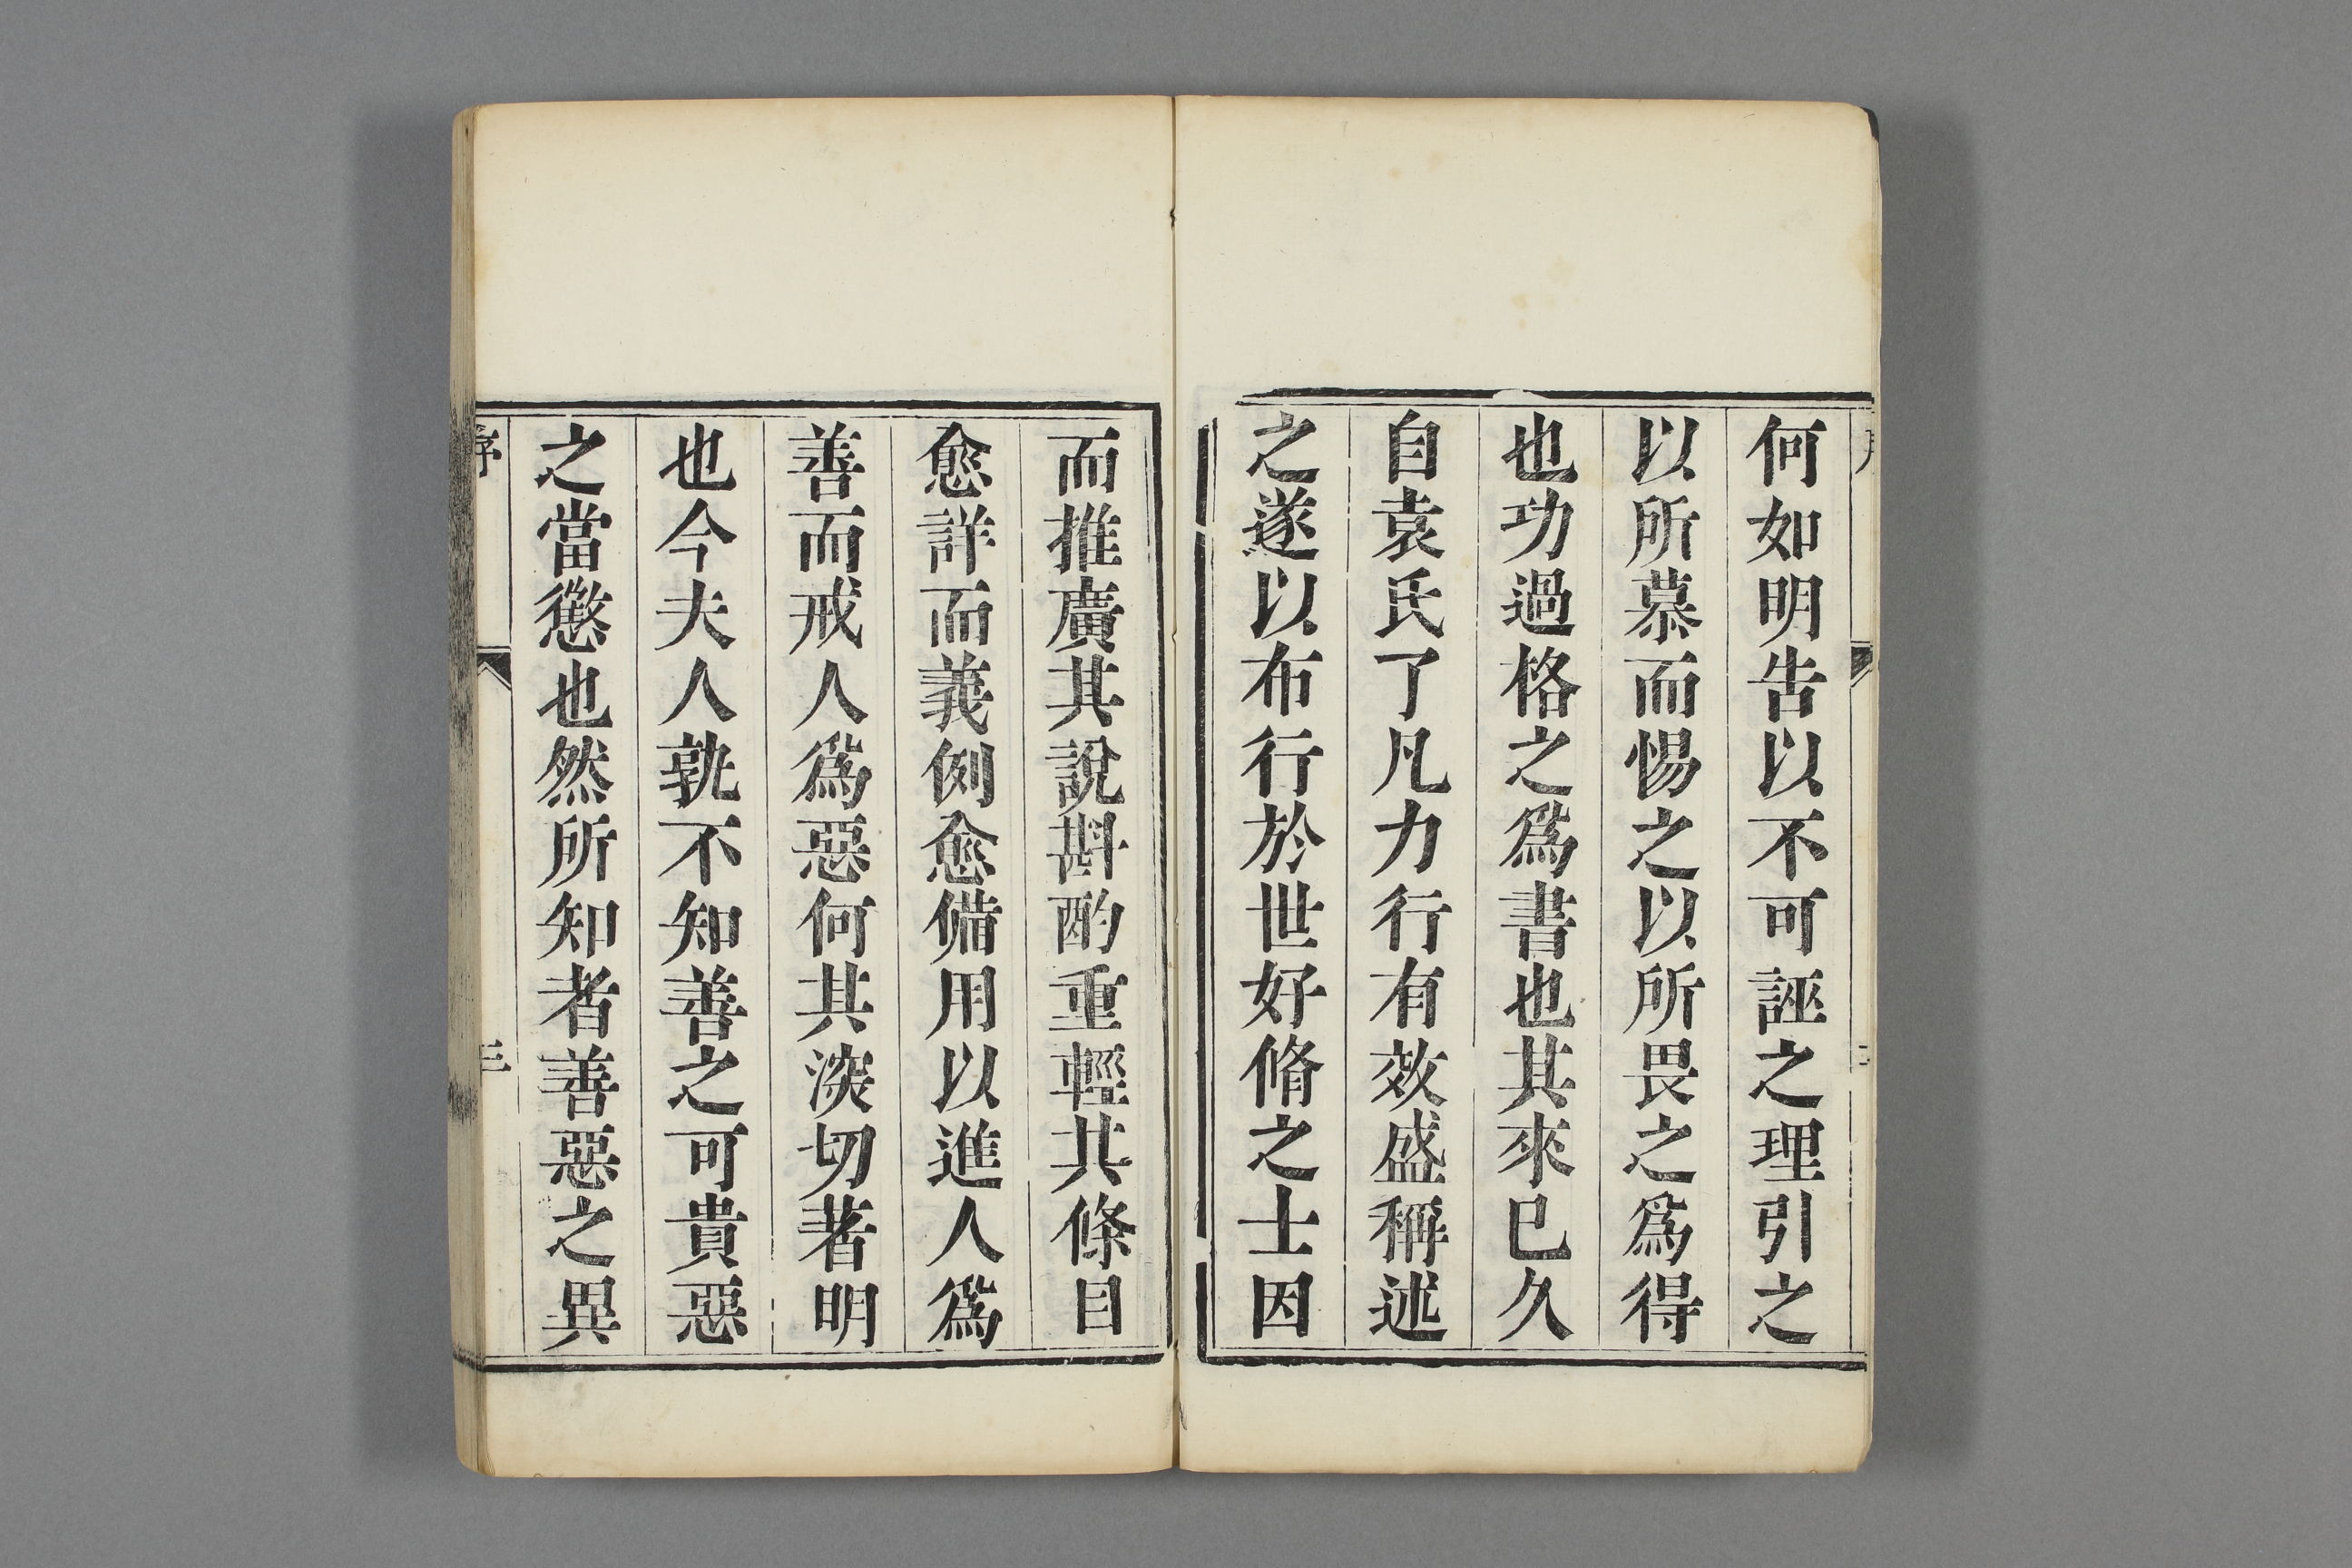 何如明告以不可誣之理引之
以所慕而惕之以所畏之爲得
也功過格之爲書也其來已久
自袁氏了凡力行有效盛稱述
之遂以布行於世好脩之士因
而推廣其說斟酌重輕其條目
愈詳而義例愈備用以進人爲
善而戒人爲惡何其深切著明
也今夫人孰不知善之可貴惡
之當懲也然所知者善惡之異
序
三